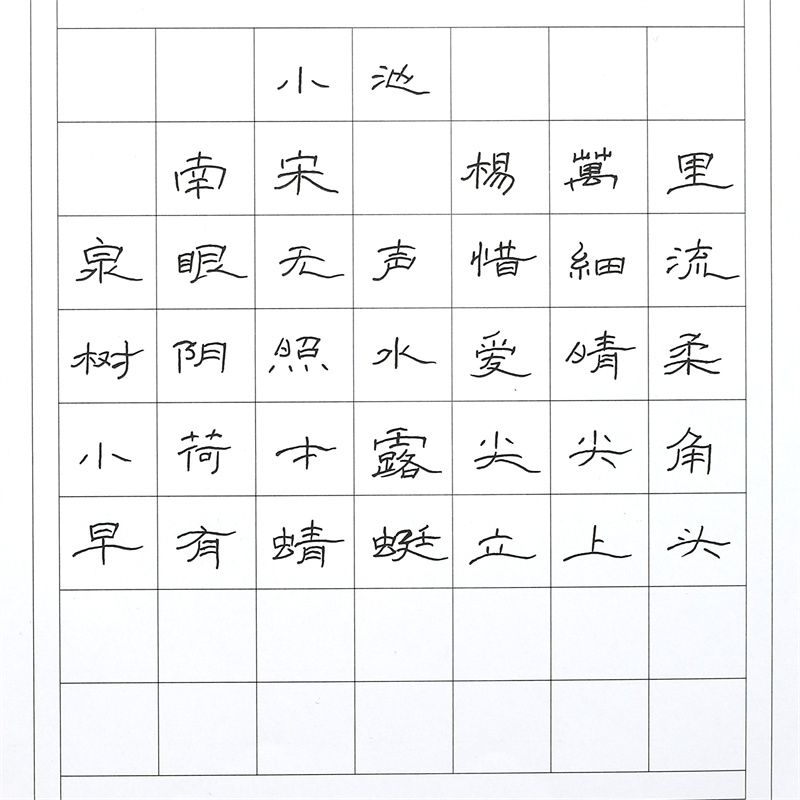 小池
南宋 楊萬里
泉眼无声惜細流
树阴照水爱晴柔
小荷才露尖尖角
早有蜻蜓立上头